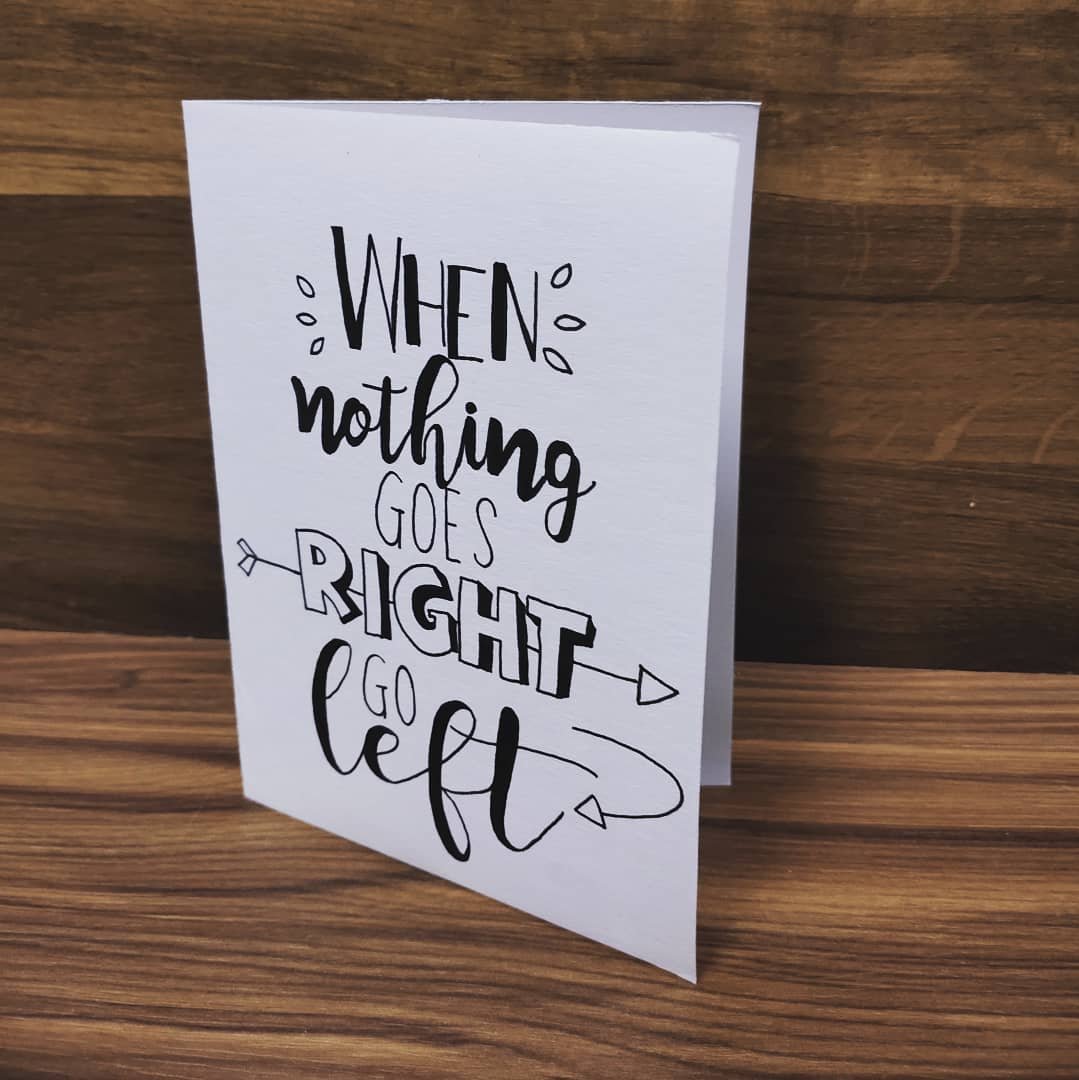 WHEN
nothing
GOES
RIGHT
GO
left